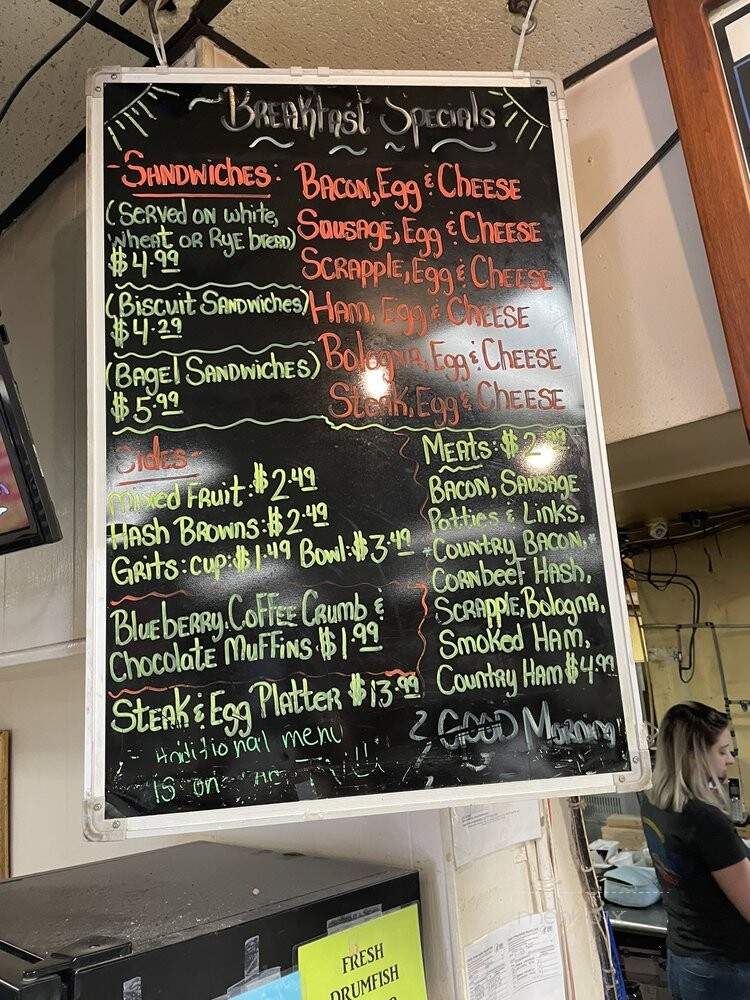 Breakfast Specials
- Sandwiches:
(Served on white,
wheat or Rye bread)
$4.99
(Biscuit Sandwiches)
$4.29
(Bagel Sandwiches)
$5.99
Bacon, Egg & Cheese
Sausage, Egg & Cheese
Scrapple, Egg & Cheese
Ham, Egg & Cheese
Bologna, Egg & Cheese
Steak, Egg & Cheese
Sides-
Mixed Fruit: $2.49
Hash Browns: $2.49
Grits: cup: $1.49 Bowl: $3.49
Blueberry, Coffee Crumb &
Chocolate Muffins $1.99
Steak & Egg Platter $13.99
Additional menu
is on
Meats: $2.99
Bacon, Sausage
Patties & Links,
*Country Bacon,*
Cornbeef Hash,
Scrapple, Bologna,
Smoked Ham,
Country Ham $4.99
Good Morning
FRESH
DRUMFISH